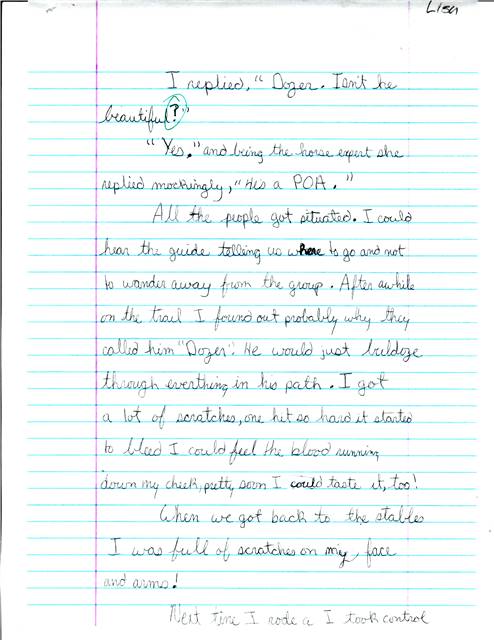 Lisa
I replied, "Dozer. Isn't he
beautiful?"
"Yes," and being the horse expert she
replied mockingly, "He's a POA."
All the people got situated. I could
hear the guide telling us where to go and not
to wander away from the group. After awhile
on the trail I found out probably why they
called him "Dozer". He would just buldoze
through everthing in his path. I got
a lot of scratches, one hit so hard it started
to bleed I could feel the blood running
down my cheek, pretty soon I could taste it, too!
When we got back to the stables
I was full of scratches on my face
and arms!
Next time I rode a I took control